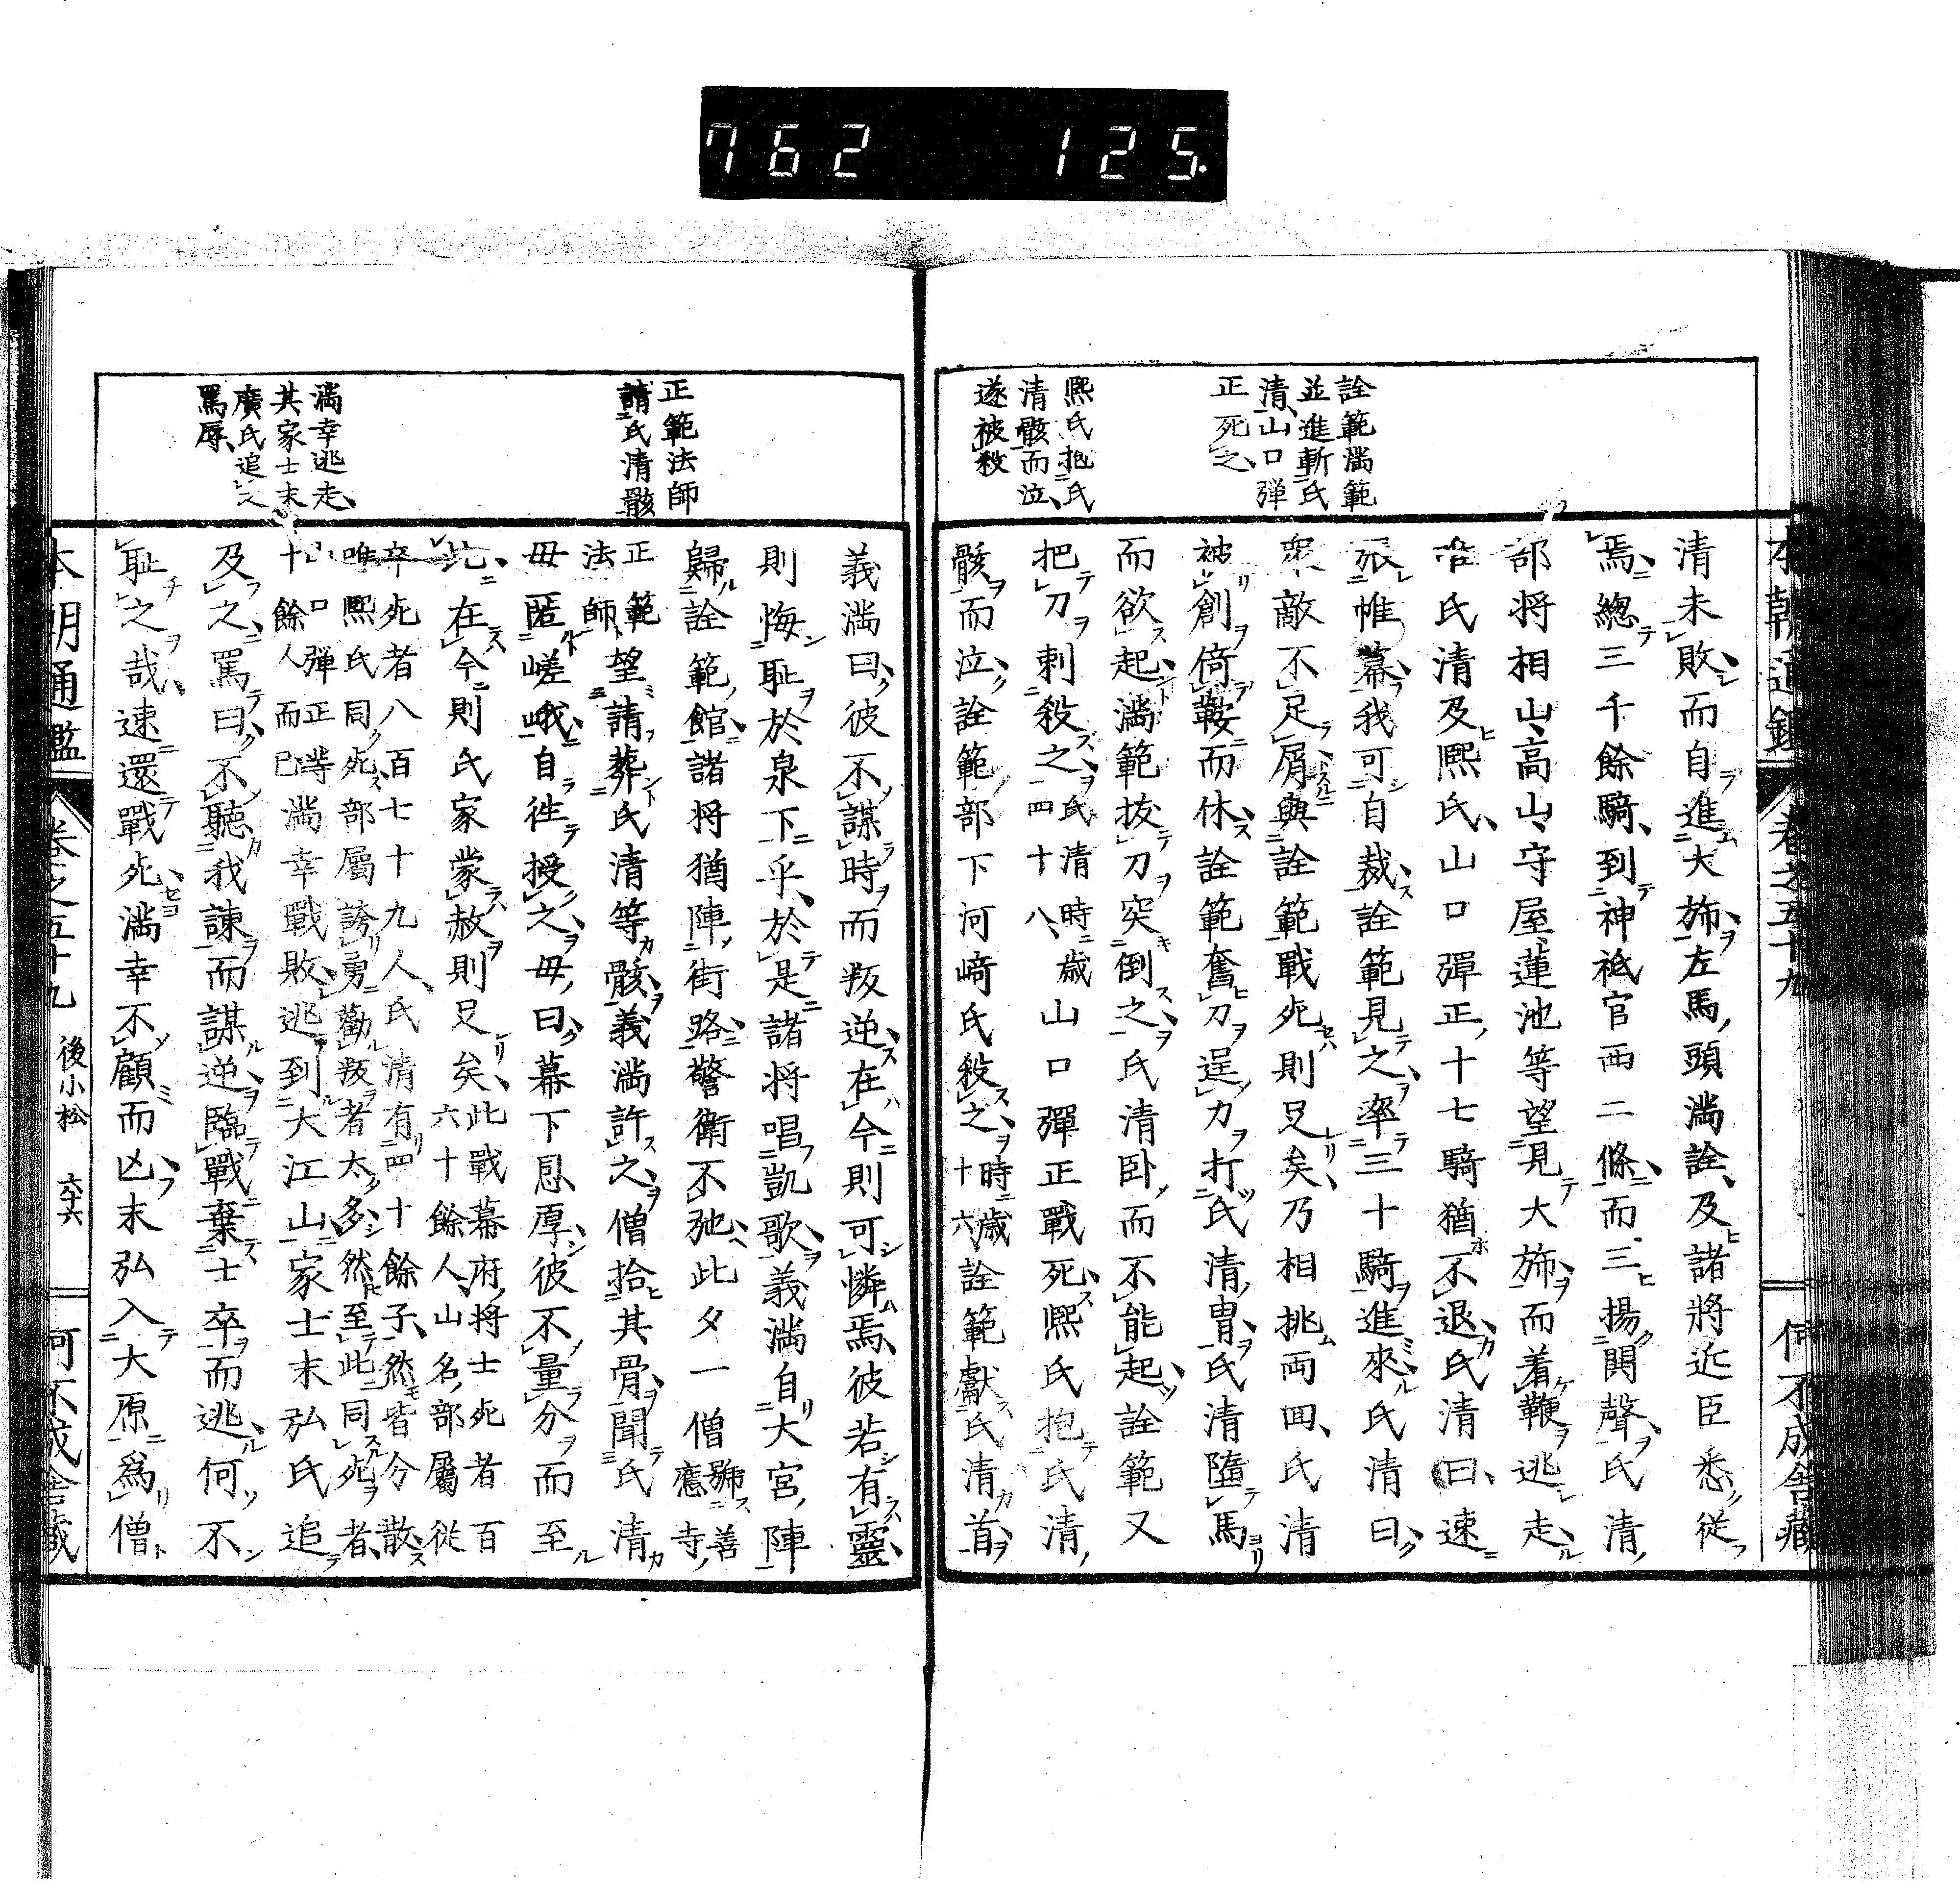 762 125
詮範満範
並進斬氏
清、山口弾
正死之、
熙氏抱氏
清骸而泣、
遂被殺
清未敗而自進大旆左馬頭満詮、及諸將近臣悉従
焉、總三千餘騎、到神祇官西二條、而三揚鬨聲、氏清
部将相山、高山、守屋、蓮池等望見大旆、而着鞭逃走
唯氏清及熙氏、山口彈正、十七騎猶不退、氏清曰、速
張帷幕、我可自裁、詮範見之、率三十騎進來、氏清曰、
衆敵不足屑、與詮範戰死則足矣、乃相挑両回、氏清
被創倚鞍而休、詮範奮刀逞力打氏清冑、氏清墮馬
而欲起、満範抜刀突倒之、氏清卧而不能起、詮範又
把刀刺殺之、氏清時歳
四十八、山口彈正戰死、熙氏抱氏清
骸而泣、詮範部下河﨑氏殺之、時歳
十六詮範獻氏清首
義満曰、彼不謀時而叛逆、在今則可憐焉、彼若有靈、
則悔恥於泉下乎、於是諸将唱凱歌、義満自大宮陣
歸詮範館、諸将猶陣街路、警衛不弛、此夕一僧號善
應寺
正範
法師望請葬氏清等骸、義満許之、僧拾其骨、聞氏清
母匿嵯峨、自徃授之、母曰、幕下恩厚、彼不量分而至
此、在今則氏家蒙赦則足矣、此戰幕府将士死者百
六十餘人、山名部屬従
卒死者八百七十九人、氏清有四十餘子、然皆分散、
唯熙氏同死、部屬誇勇勸叛者太多、然至此同死者、
山口彈正等
十餘人而已満幸戰敗、逃到大江山、家士末弘氏追
及之、罵曰、不聽我諫而謀逆、臨戰棄士卒而逃、何不
恥之哉、速還戰死、満幸不顧而凶、末弘入大原為僧
正範法師
請氏清骸
満幸逃走、
其家士末
廣氏追之
罵辱、
本朝通鑑 卷之五十九 後小松 六十六
本朝通鑑 卷之五十九 何不成舎藏